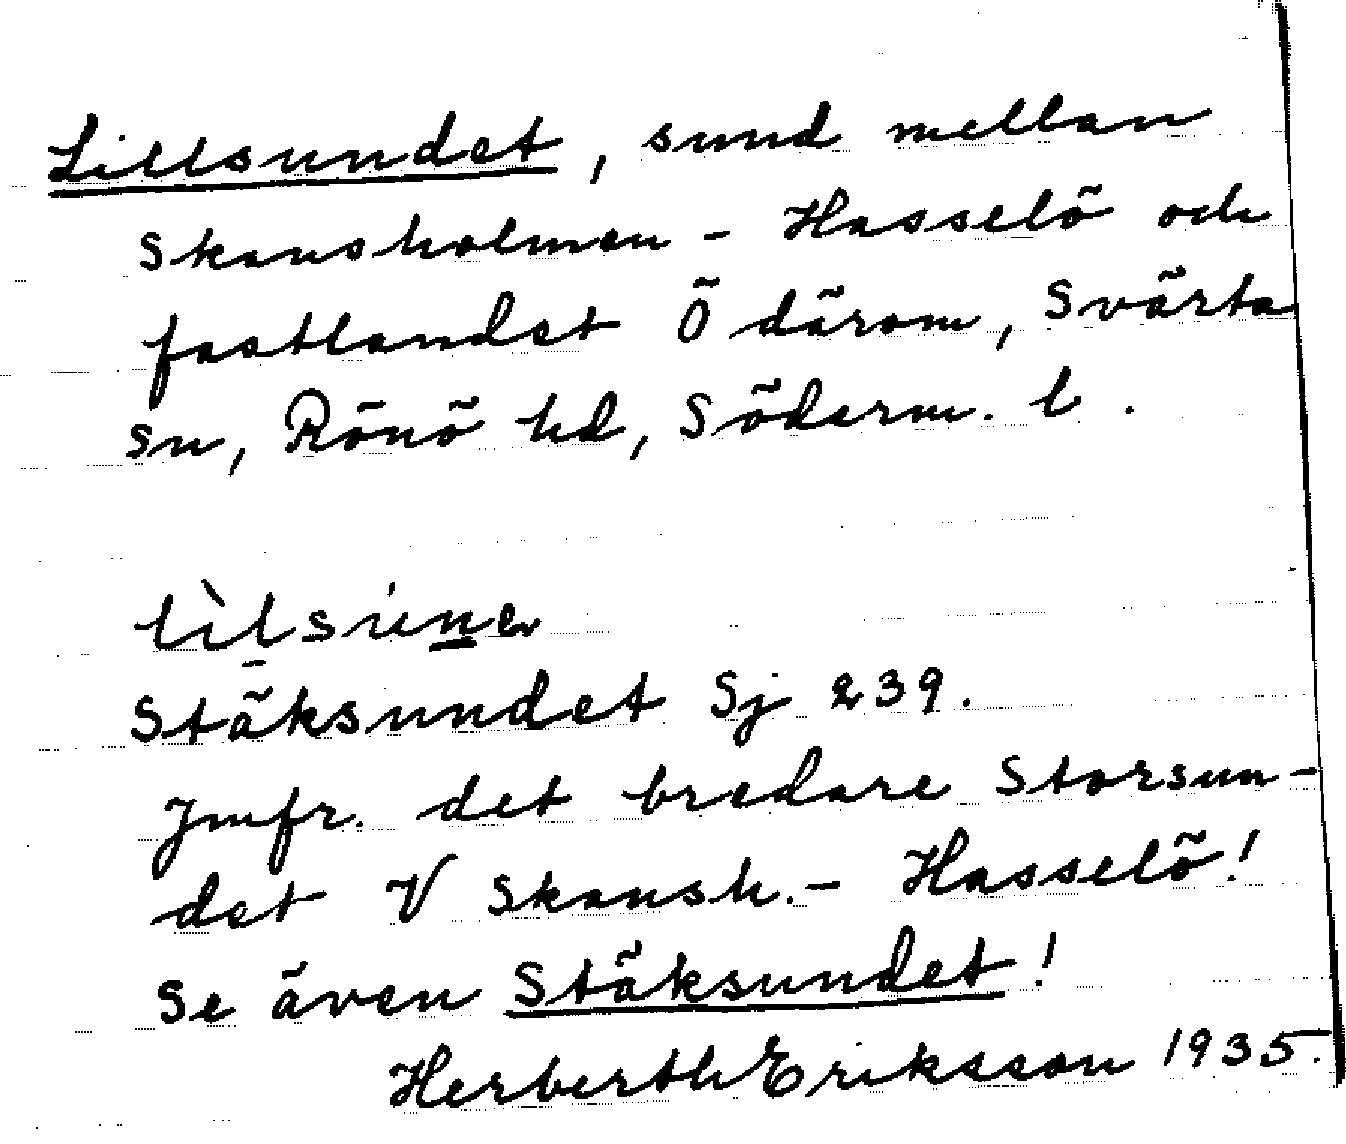 Lillsundet, sund mellan
Skansholmen - Hasselö och
fastlandet Ö därom, Svärta
sn, Rönö hd, Söderm. l.
Stäksundet Sj 239.
Jmfr. det bredare Storsun-
det V Skansh. - Hasselö!
Se även Stäksundet!
Herberth Eriksson 1935.